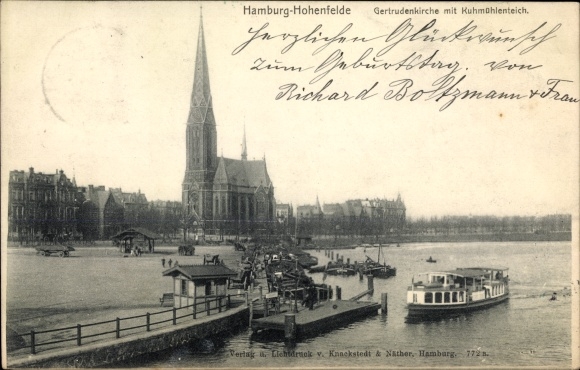 Hamburg-Hohenfelde Gertrudenkirche mit Kuhmühlenteich.
Herzlichen Glückwunsch
zum Geburtstag. von
Richard Boltzmann & Frau
Verlag u. Lichtdruck v. Knackstedt & Näther, Hamburg. 772a.